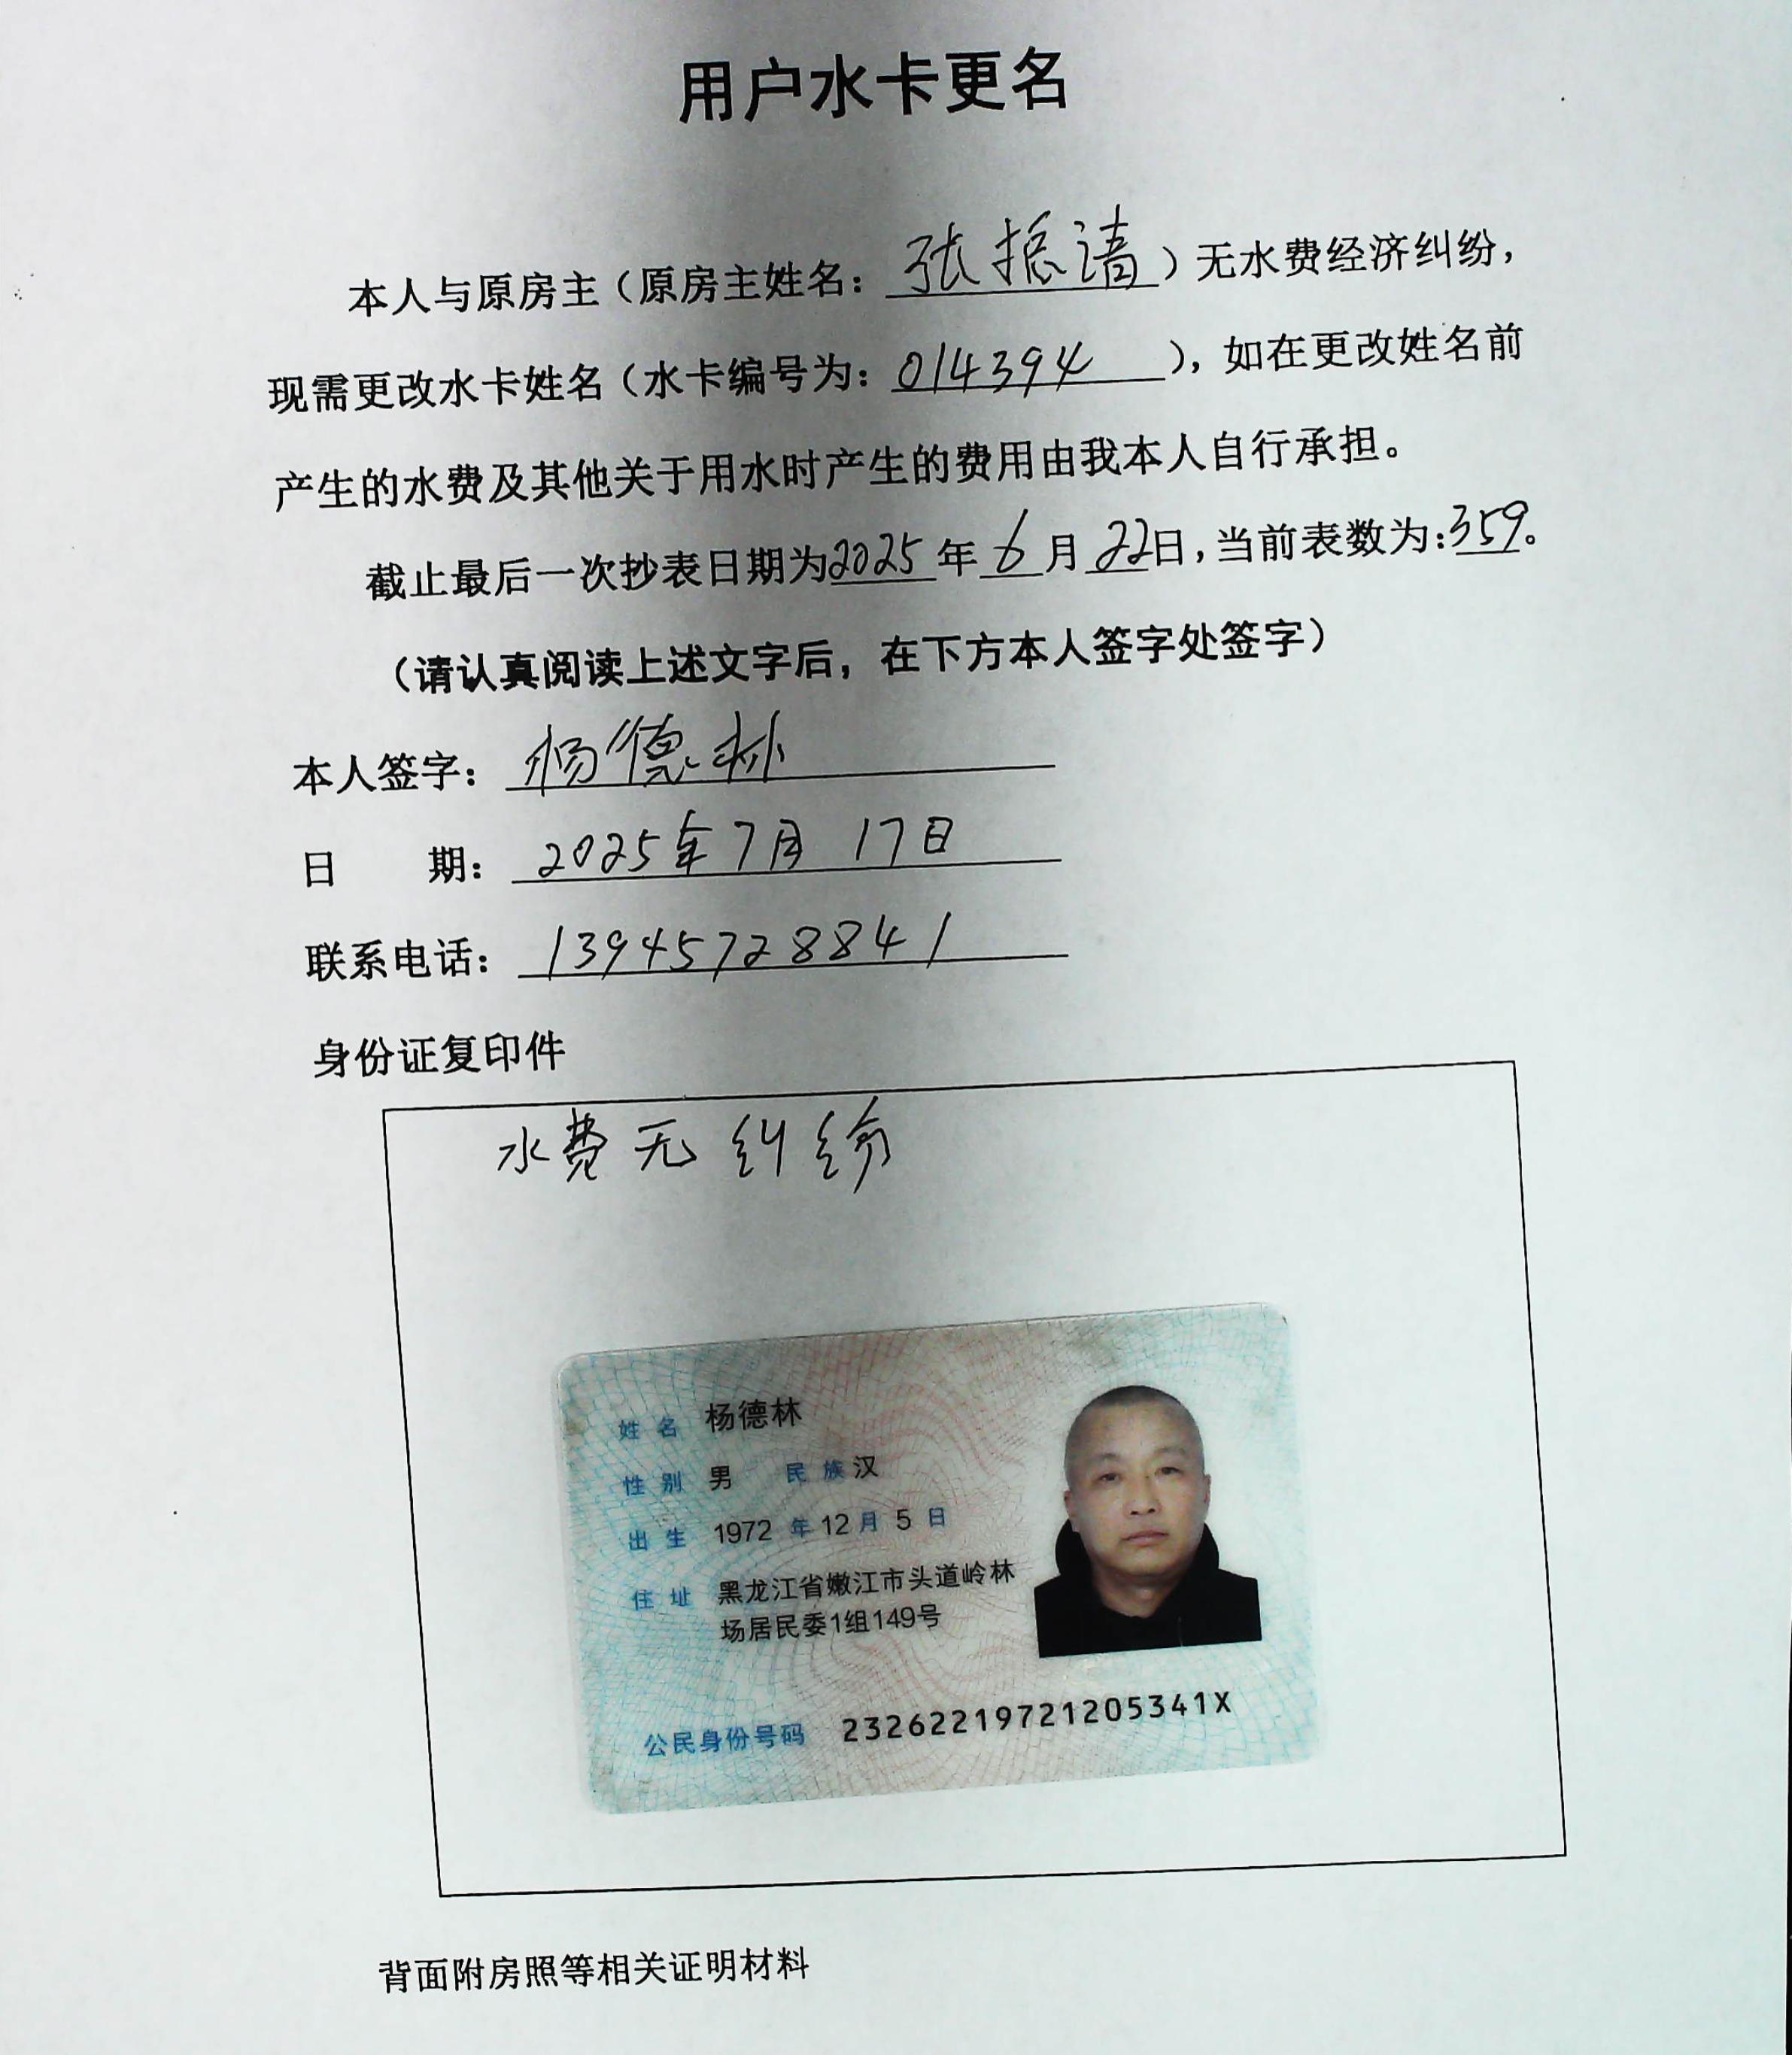 用户水卡更名
本人与原房主（原房主姓名：张振清）无水费经济纠纷，
现需更改水卡姓名（水卡编号为：014394），如在更改姓名前
产生的水费及其他关于用水时产生的费用由我本人自行承担。
截止最后一次抄表日期为2025年6月22日，当前表数为：359。
（请认真阅读上述文字后，在下方本人签字处签字）
本人签字：杨德林
日期：2025年7月17日
联系电话：13945728841
身份证复印件
水费无纠纷
姓名 杨德林
性别 男 民族 汉
出生 1972年12月5日
住址 黑龙江省嫩江市头道岭林
场居民委1组149号
公民身份号码 23262219721205341X
背面附房照等相关证明材料